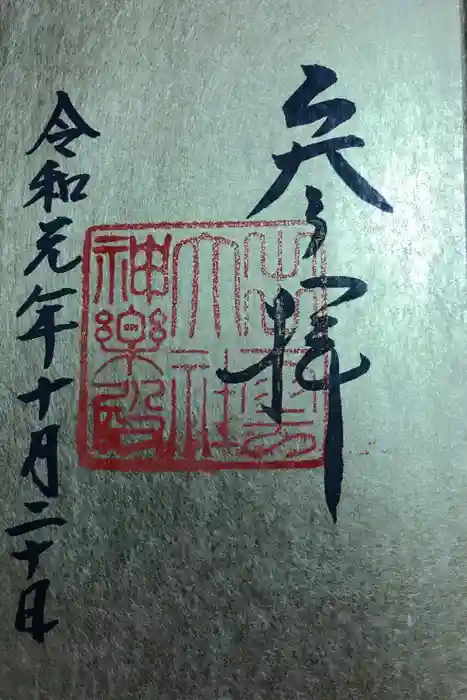 参拝
出雲
大社
神樂殿
令和元年十月二十日